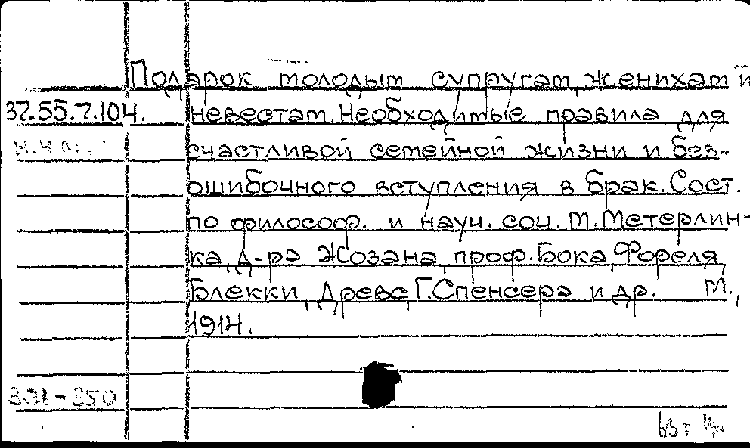 Подарок молодым супругам, женихам и
37.55.7.104. невестам. Необходимые правила для
счастливой семейной жизни и без-
ошибочного вступления в брак. Сост.
по философ. и науч. соч. М. Метерлин-
ка, д-ра Жозана, проф. Бока, Фореля,
Блекки, Древс, Г. Спенсера и др. М.,
1914.
301-350